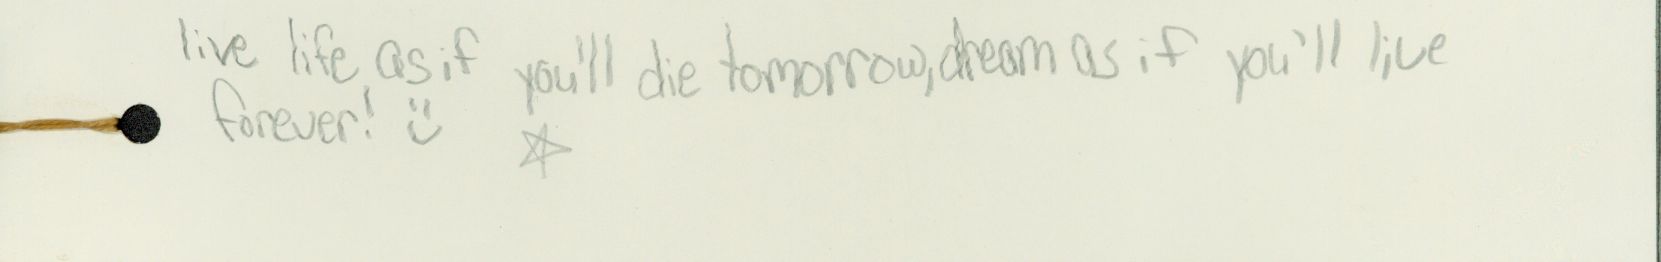 live life as if you'll die tomorrow, dream as if you'll live
forever! :)